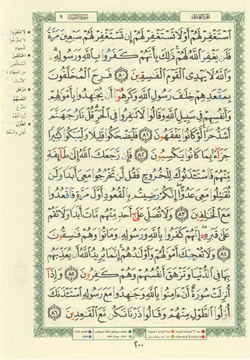 ٱسْتَغْفِرْ لَهُمْ أَوْ لَا تَسْتَغْفِرْ لَهُمْ إِن تَسْتَغْفِرْ لَهُمْ سَبْعِينَ مَرَّةً
فَلَن يَغْفِرَ ٱللَّهُ لَهُمْ ذَٰلِكَ بِأَنَّهُمْ كَفَرُوا۟ بِٱللَّهِ وَرَسُولِهِۦ
وَٱللَّهُ لَا يَهْدِى ٱلْقَوْمَ ٱلْفَٰسِقِينَ ٨٠ فَرِحَ ٱلْمُخَلَّفُونَ
بِمَقْعَدِهِمْ خِلَٰفَ رَسُولِ ٱللَّهِ وَكَرِهُوٓا۟ أَن يُجَٰهِدُوا۟ بِأَمْوَٰلِهِمْ
وَأَنفُسِهِمْ فِى سَبِيلِ ٱللَّهِ وَقَالُوا۟ لَا تَنفِرُوا۟ فِى ٱلْحَرِّ قُلْ نَارُ جَهَنَّمَ
أَشَدُّ حَرًّا لَّوْ كَانُوا۟ يَفْقَهُونَ ٨١ فَلْيَضْحَكُوا۟ قَلِيلًا وَلْيَبْكُوا۟ كَثِيرًا
جَزَآءًۢ بِمَا كَانُوا۟ يَكْسِبُونَ ٨٢ فَإِن رَّجَعَكَ ٱللَّهُ إِلَىٰ طَآئِفَةٍ
مِّنْهُمْ فَٱسْتَـْٔذَنُوكَ لِلْخُرُوجِ فَقُل لَّن تَخْرُجُوا۟ مَعِىَ أَبَدًا وَلَن
تُقَٰتِلُوا۟ مَعِىَ عَدُوًّا إِنَّكُمْ رَضِيتُم بِٱلْقُعُودِ أَوَّلَ مَرَّةٍ فَٱقْعُدُوا۟
مَعَ ٱلْخَٰلِفِينَ ٨٣ وَلَا تُصَلِّ عَلَىٰٓ أَحَدٍ مِّنْهُم مَّاتَ أَبَدًا وَلَا تَقُمْ
عَلَىٰ قَبْرِهِۦٓ إِنَّهُمْ كَفَرُوا۟ بِٱللَّهِ وَرَسُولِهِۦ وَمَاتُوا۟ وَهُمْ فَٰسِقُونَ
٨٤ وَلَا تُعْجِبْكَ أَمْوَٰلُهُمْ وَأَوْلَٰدُهُمْ إِنَّمَا يُرِيدُ ٱللَّهُ أَن يُعَذِّبَهُم
بِهَا فِى ٱلدُّنْيَا وَتَزْهَقَ أَنفُسُهُمْ وَهُمْ كَٰفِرُونَ ٨٥ وَإِذَآ
أُنزِلَتْ سُورَةٌ أَنْ ءَامِنُوا۟ بِٱللَّهِ وَجَٰهِدُوا۟ مَعَ رَسُولِهِ ٱسْتَـْٔذَنَكَ
أُو۟لُوا۟ ٱلطَّوْلِ مِنْهُمْ وَقَالُوا۟ ذَرْنَا نَكُن مَّعَ ٱلْقَٰعِدِينَ ٨٦
٢٠٠